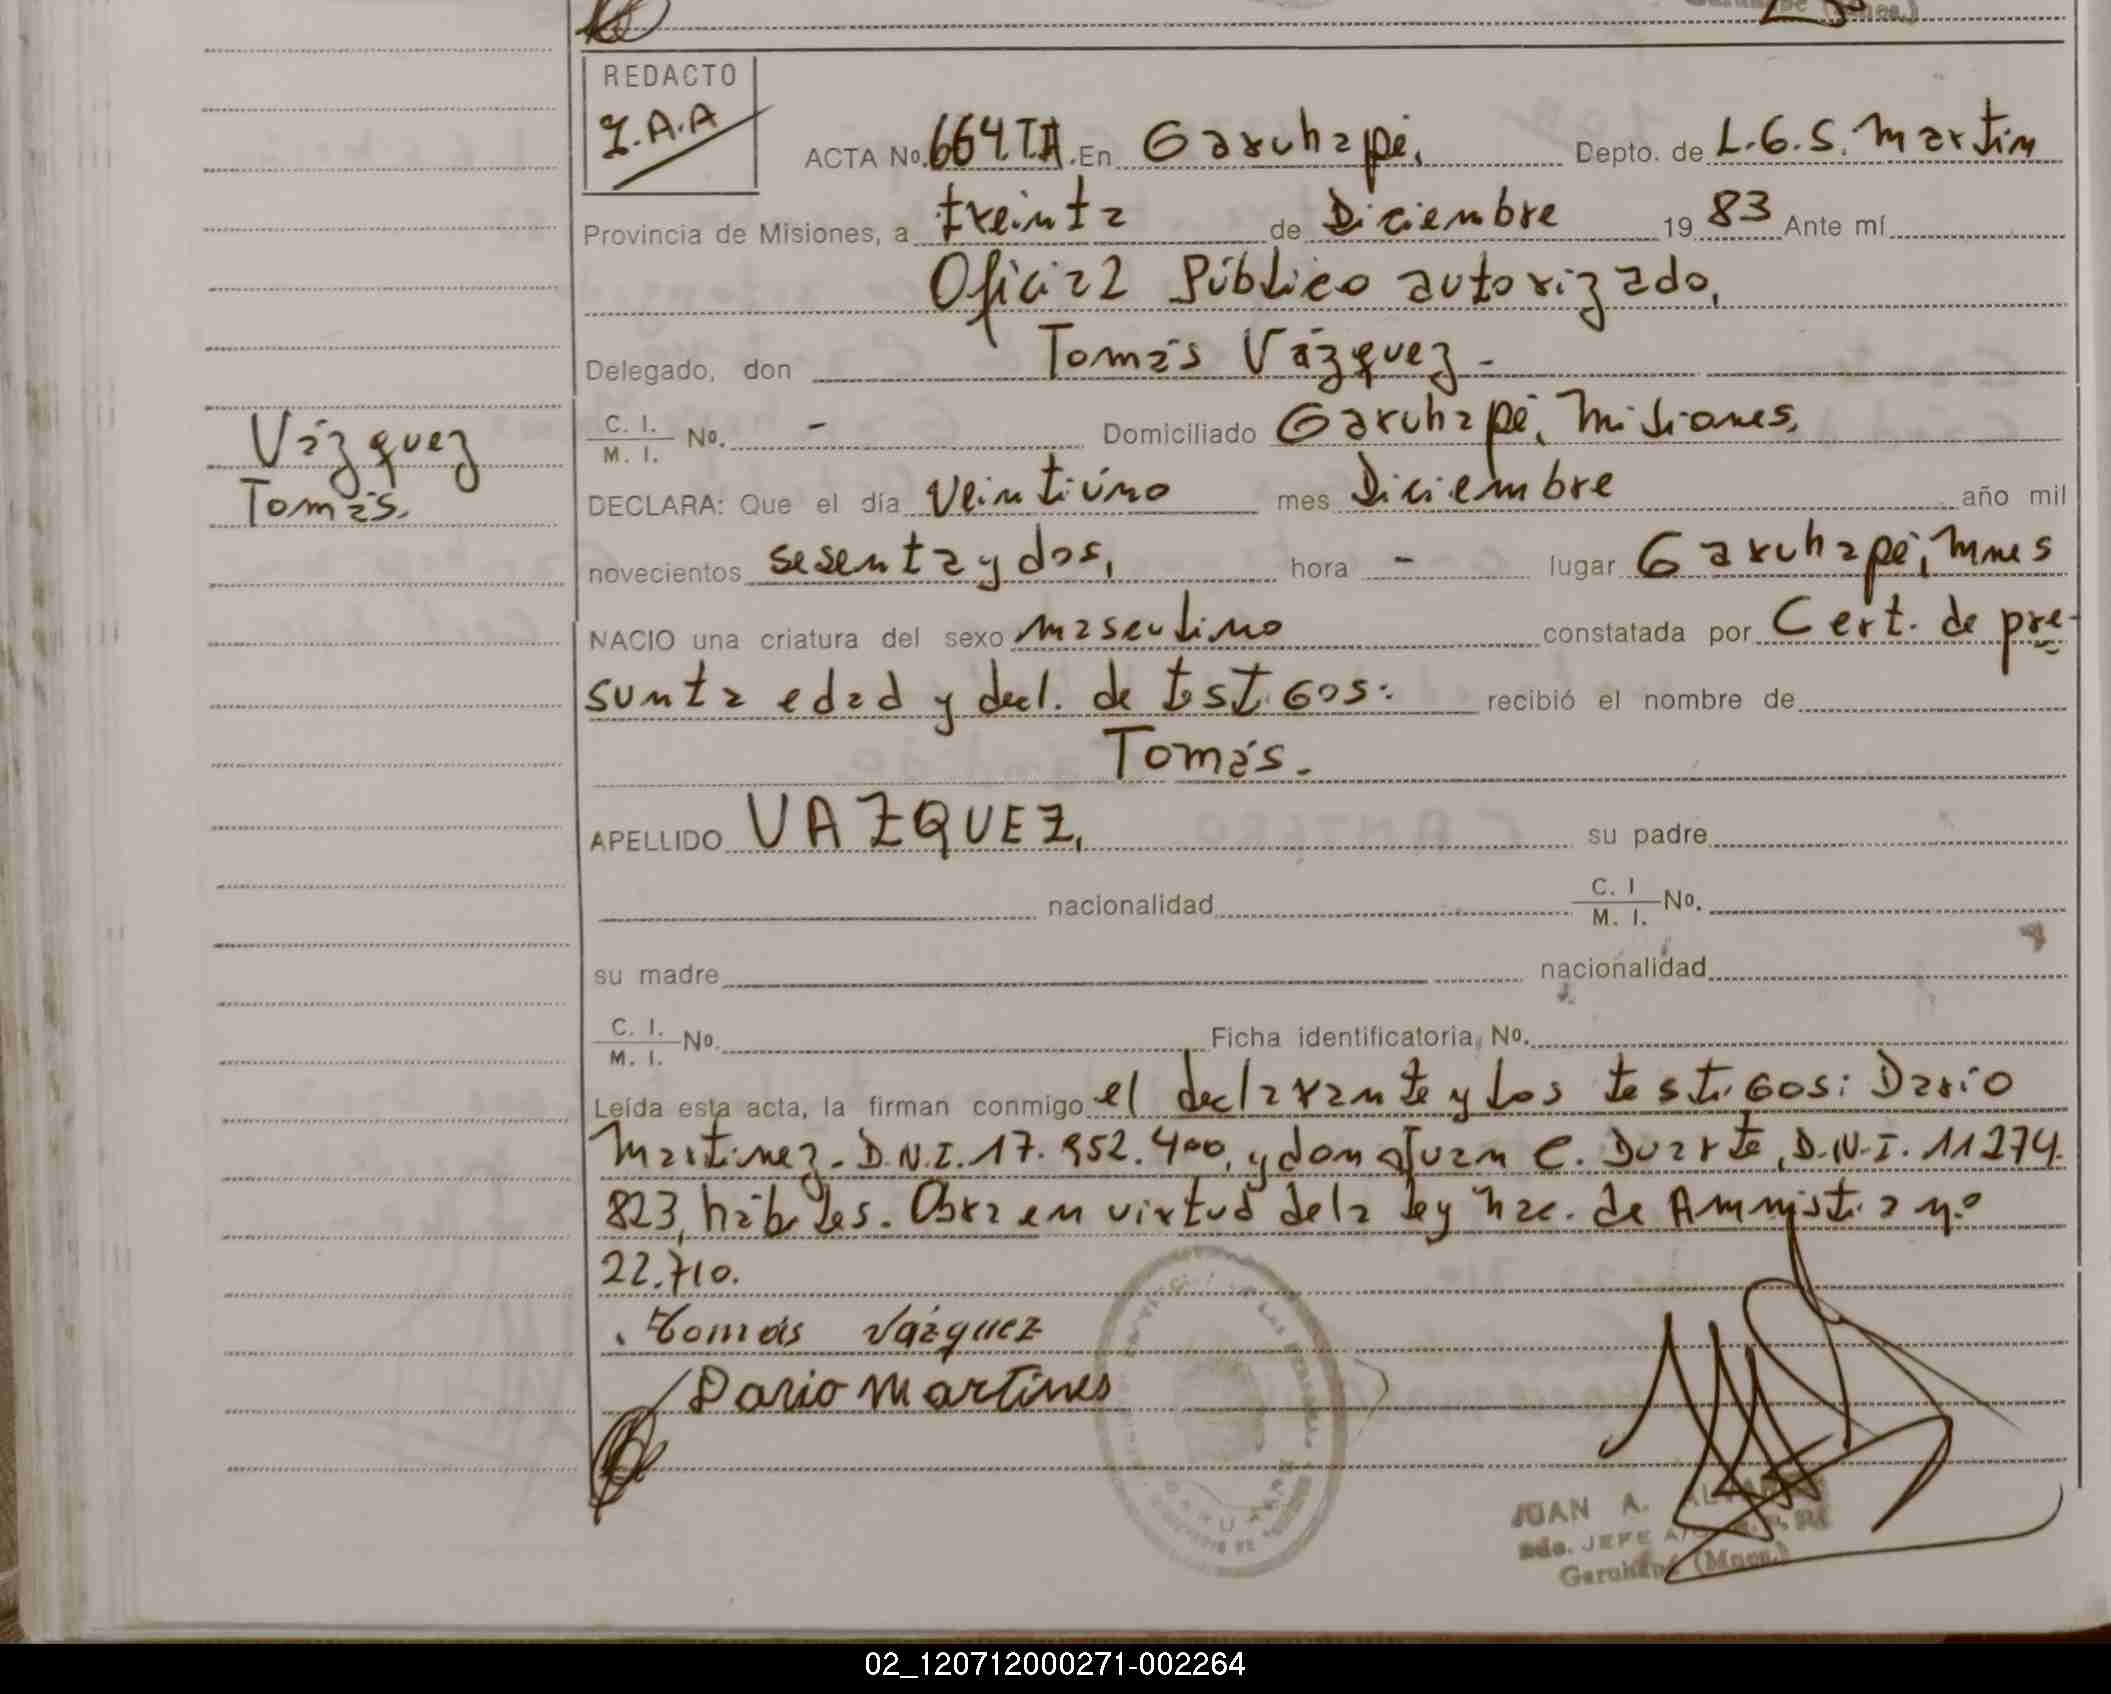 REDACTO
J.A.A
ACTA No. 664.T.A. En Garuhapé, Depto. de L.G.S. Martin
Provincia de Misiones, a treinta de Diciembre 19 83 Ante mí
Oficial Público autorizado,
Delegado, don Tomás Vázquez-
C. I. / M. I. No. - Domiciliado Garuhapé, Misiones,
Vázquez
Tomás.
DECLARA: Que el día veintiúno mes Diciembre año mil
novecientos sesenta y dos, hora - lugar Garuhapé, Mnes
NACIO una criatura del sexo masculino constatada por Cert. de pre-
sunta edad y decl. de testigos: recibió el nombre de
Tomás.
APELLIDO VAZQUEZ, su padre
nacionalidad C. I / M. I. No.
su madre nacionalidad
C. I. / M. I. No. Ficha identificatoria, No.
Leída esta acta, la firman conmigo el declarante y los testigos: Dario
Martinez- D.N.I. 17.952.400, y don Juan C. Duarte, D.N.I. 11274.
823, hábiles. Obra en virtud de la ley nac. de Amnistia n.º
22.710.
Tomás Vázquez
Dario Martines
JUAN A.
JEFE
Garuhapé (Mnes.)
02_120712000271-002264